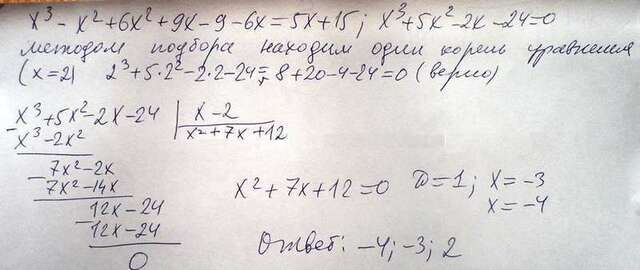 x³ - x² + 6x² + 9x - 9 - 6x = 5x + 15; x³ + 5x² - 2x - 24 = 0
методом подбора находим один корень уравнения
(x = 2) 2³ + 5·2² - 2·2 - 24 = 8 + 20 - 4 - 24 = 0 (верно)
x³ + 5x² - 2x - 24 | x - 2
- x³ - 2x² x² + 7x + 12
7x² - 2x
- 7x² - 14x
x² + 7x + 12 = 0 D = 1; x = -3
x = -4
12x - 24
- 12x - 24
0
Ответ: -4; -3; 2